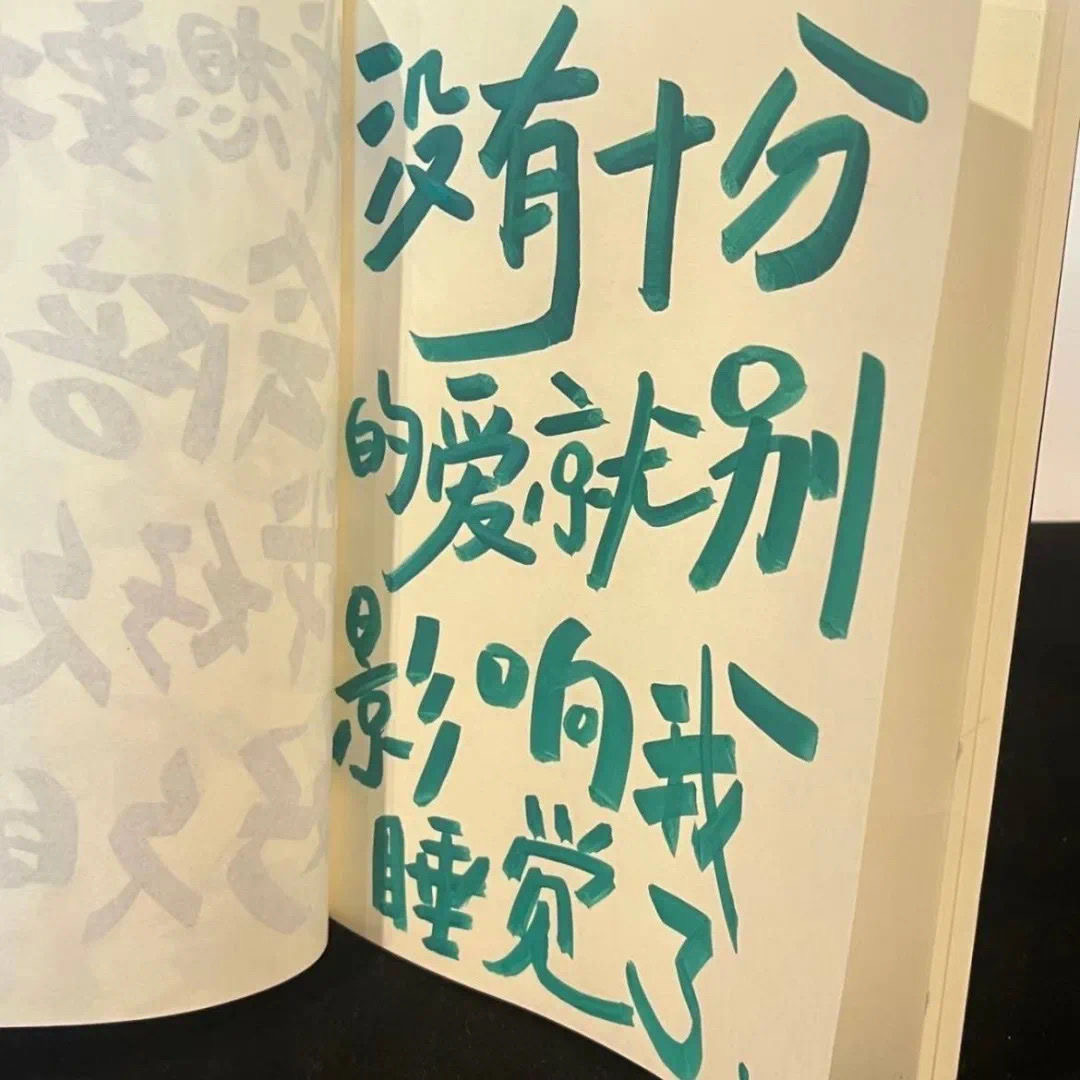 没有十分
的爱就别
影响我
睡觉了